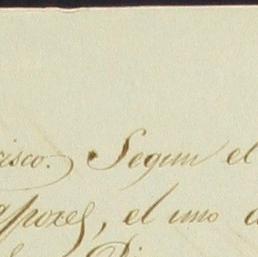 isco. Segun el
apores, el uno